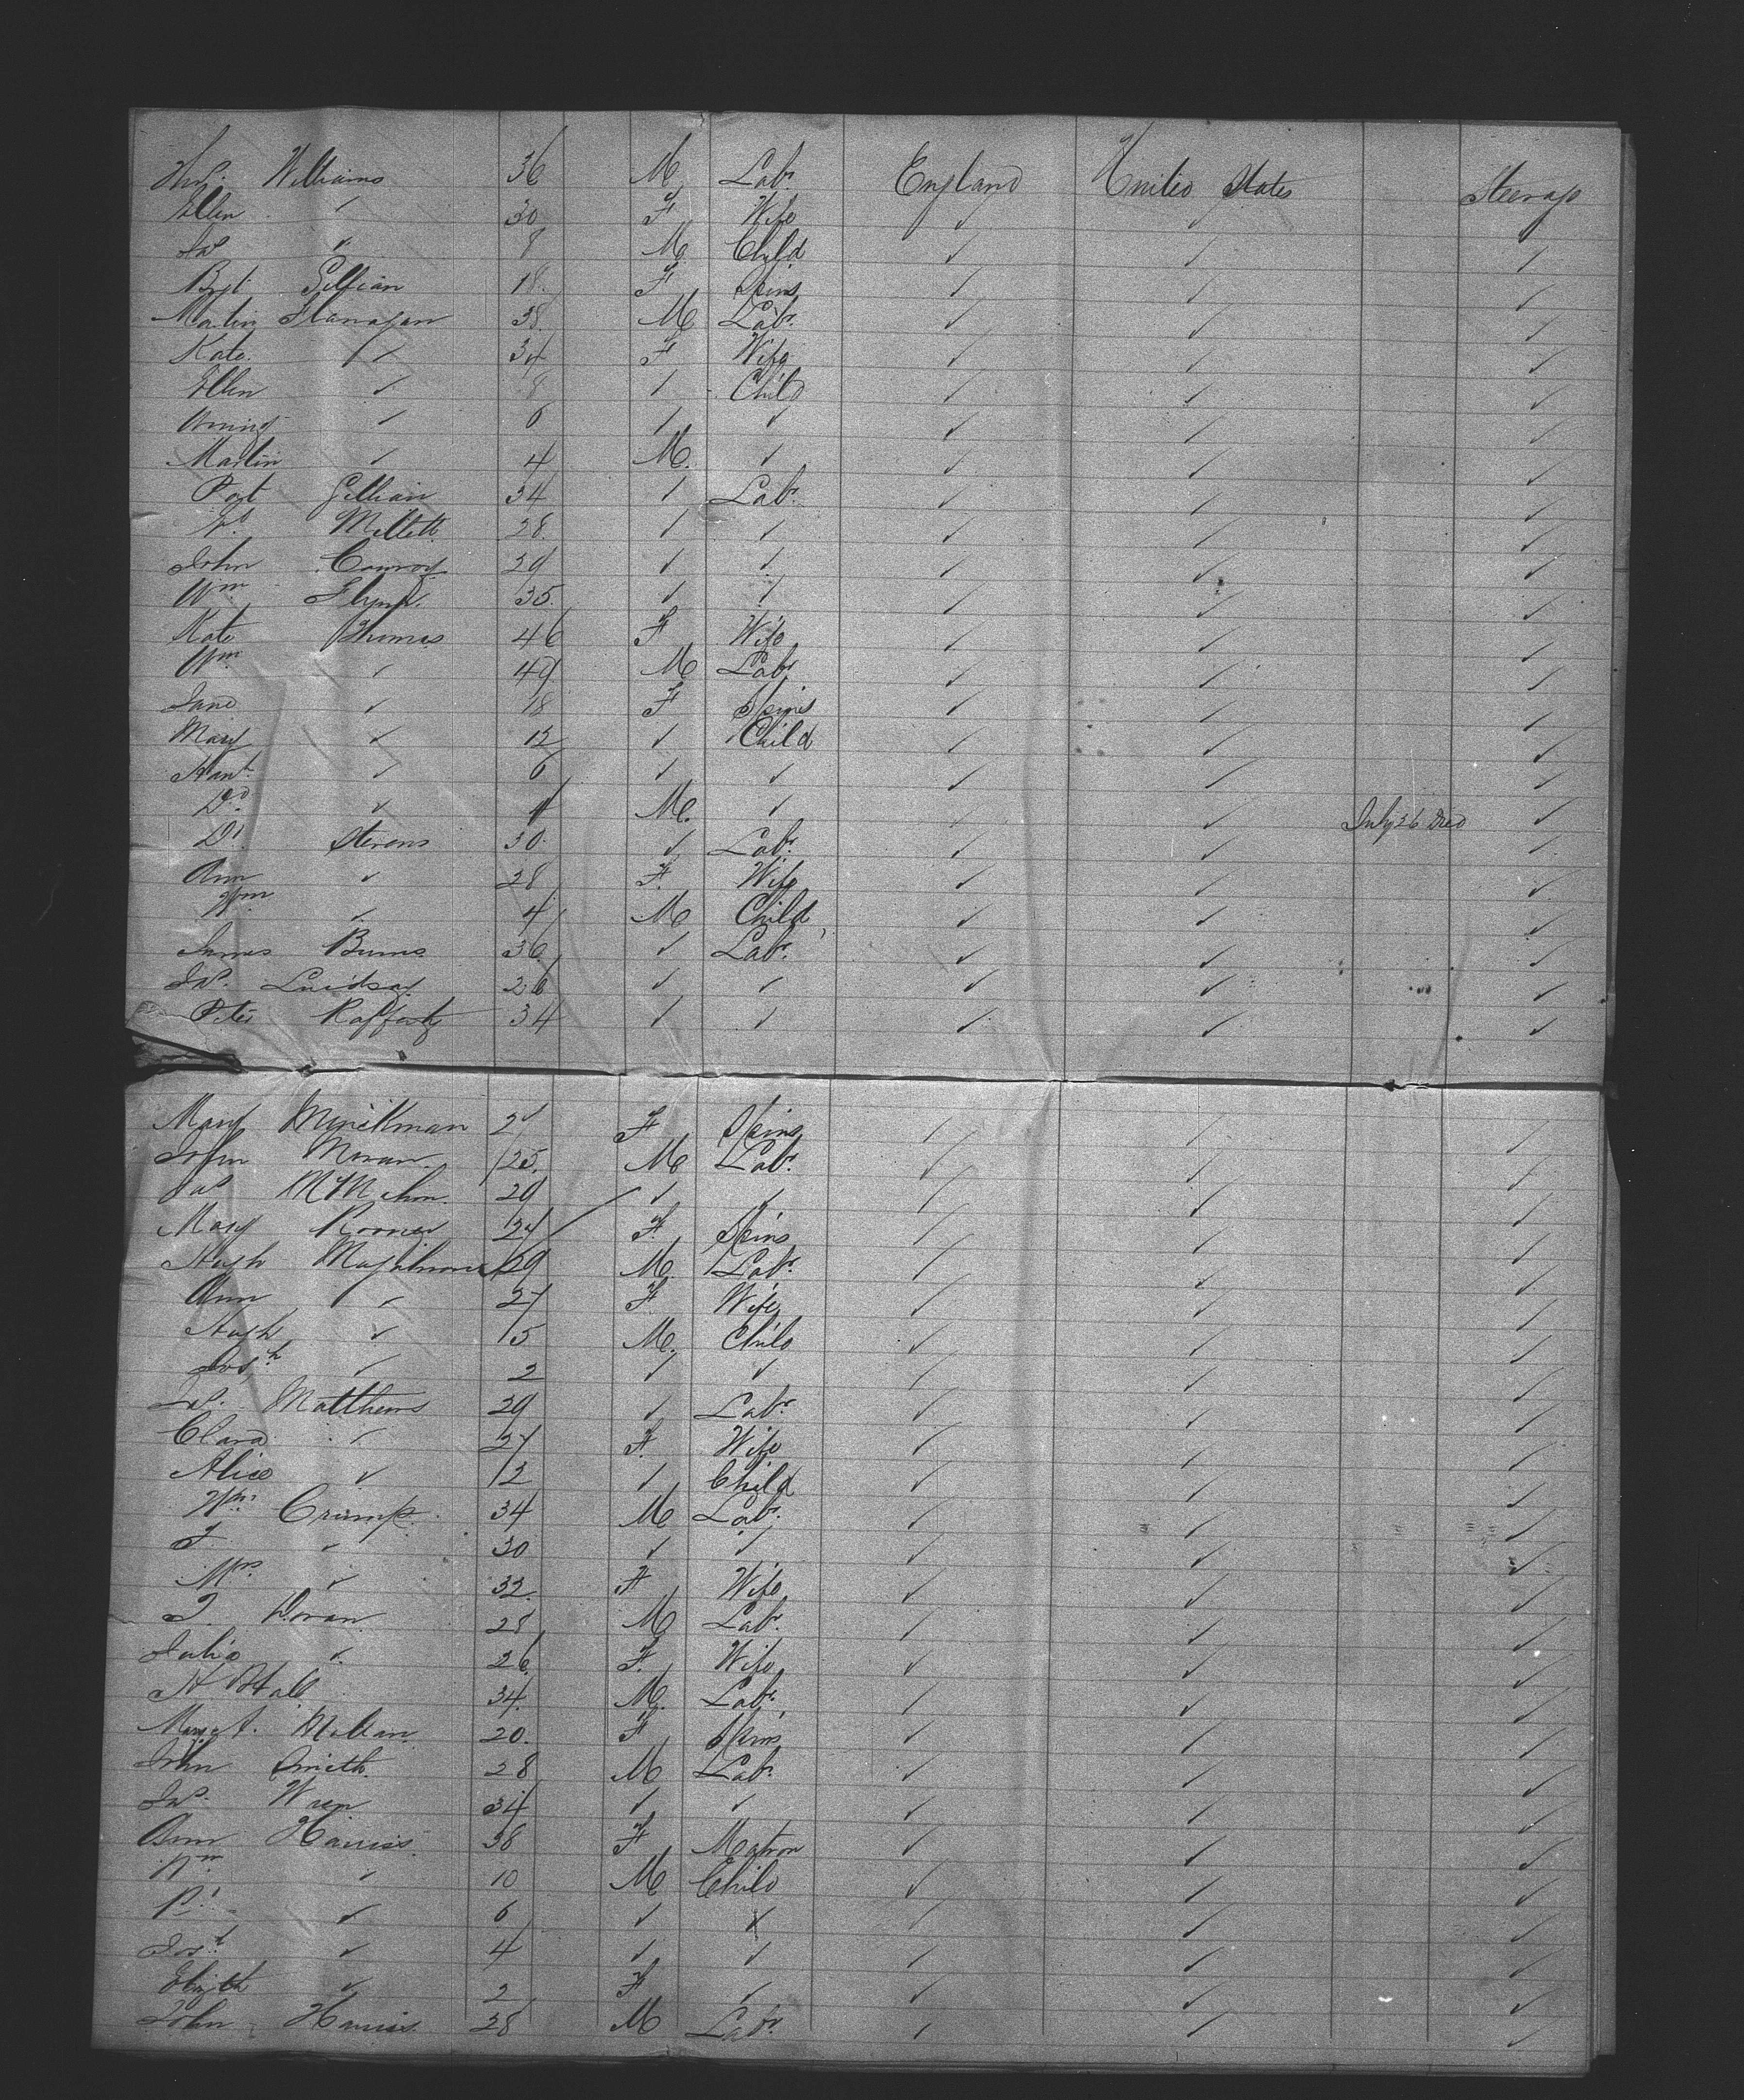 Thos. Williams 36 M Labr. England United States Steerage
Ellen ✓ 30 F Wife ✓ ✓ ✓
Jas ✓ 8 M Child ✓ ✓ ✓
Bgt. Gillian 18 F Spins ✓ ✓ ✓
Martin Flanagan 38 M Labr. ✓ ✓ ✓
Kate ✓ 34 F Wife ✓ ✓ ✓
Ellen ✓ 8 ✓ Child ✓ ✓ ✓
✓ 6 ✓ ✓ ✓ ✓ ✓
Martin ✓ 4 M. ✓ ✓ ✓ ✓
Pat Gillian 34 ✓ Labr. ✓ ✓ ✓
Millett 28 ✓ ✓ ✓ ✓ ✓
John Conroy 29 ✓ ✓ ✓ ✓ ✓
Wm Flynn. 35 ✓ ✓ ✓ ✓ ✓
Kate Thomas 46 F Wife ✓ ✓ ✓
Wm ✓ 49 M Labr ✓ ✓ ✓
Jane ✓ 18 F Spins ✓ ✓ ✓
Mary ✓ 12 ✓ Child ✓ ✓ ✓
Hant. ✓ 6 ✓ ✓ ✓ ✓ ✓
Dd. ✓ M. ✓ ✓ ✓ July 26 Died ✓
Dd. Stevens 30 ✓ Labr. ✓ ✓ ✓
Ann ✓ 28 F. Wife ✓ ✓ ✓
Wm ✓ 4 M Child ✓ ✓ ✓
James Burns 36 ✓ Labr. ✓ ✓ ✓
Jas. Lindsay 26 ✓ ✓ ✓ ✓ ✓
Peter Rafferty 34 ✓ ✓ ✓ ✓ ✓
Mary Minickman 21 F Spins ✓ ✓ ✓
John Moran 25. M Labr. ✓ ✓ ✓
Jas 29 ✓ ✓ ✓ ✓ ✓
Mary Rooney 24 F. Spins ✓ ✓ ✓
Hugh 29 M. Labr. ✓ ✓ ✓
Ann ✓ 27 F. Wife ✓ ✓ ✓
Hugh ✓ 5 M. Child ✓ ✓ ✓
Josh ✓ 2 ✓ ✓ ✓ ✓ ✓
Jas. Matthews 29 ✓ Labr. ✓ ✓ ✓
Clara ✓ 27 F. Wife ✓ ✓ ✓
Alice ✓ 12 ✓ Child ✓ ✓ ✓
Wm. Crump 34 M Labr. ✓ ✓ ✓
✓ 30 ✓ ✓ ✓ ✓ ✓
Mrs. ✓ 32 F Wife ✓ ✓ ✓
Doran 28 M Labr. ✓ ✓ ✓
Julia ✓ 26 F. Wife ✓ ✓ ✓
H Hall 34. M. Labr. ✓ ✓ ✓
Margt. 20. F Spins ✓ ✓ ✓
John Smith 28 M Labr. ✓ ✓ ✓
Jas. Wren 34 ✓ ✓ ✓ ✓ ✓
Ann Harriss 38 F Matron ✓ ✓ ✓
Wm ✓ 10 M Child ✓ ✓ ✓
✓ 6 ✓ ✓ ✓ ✓ ✓
Josh ✓ 4 ✓ ✓ ✓ ✓ ✓
Elizth ✓ 2 F ✓ ✓ ✓ ✓
John Harriss 28 M Labr. ✓ ✓ ✓